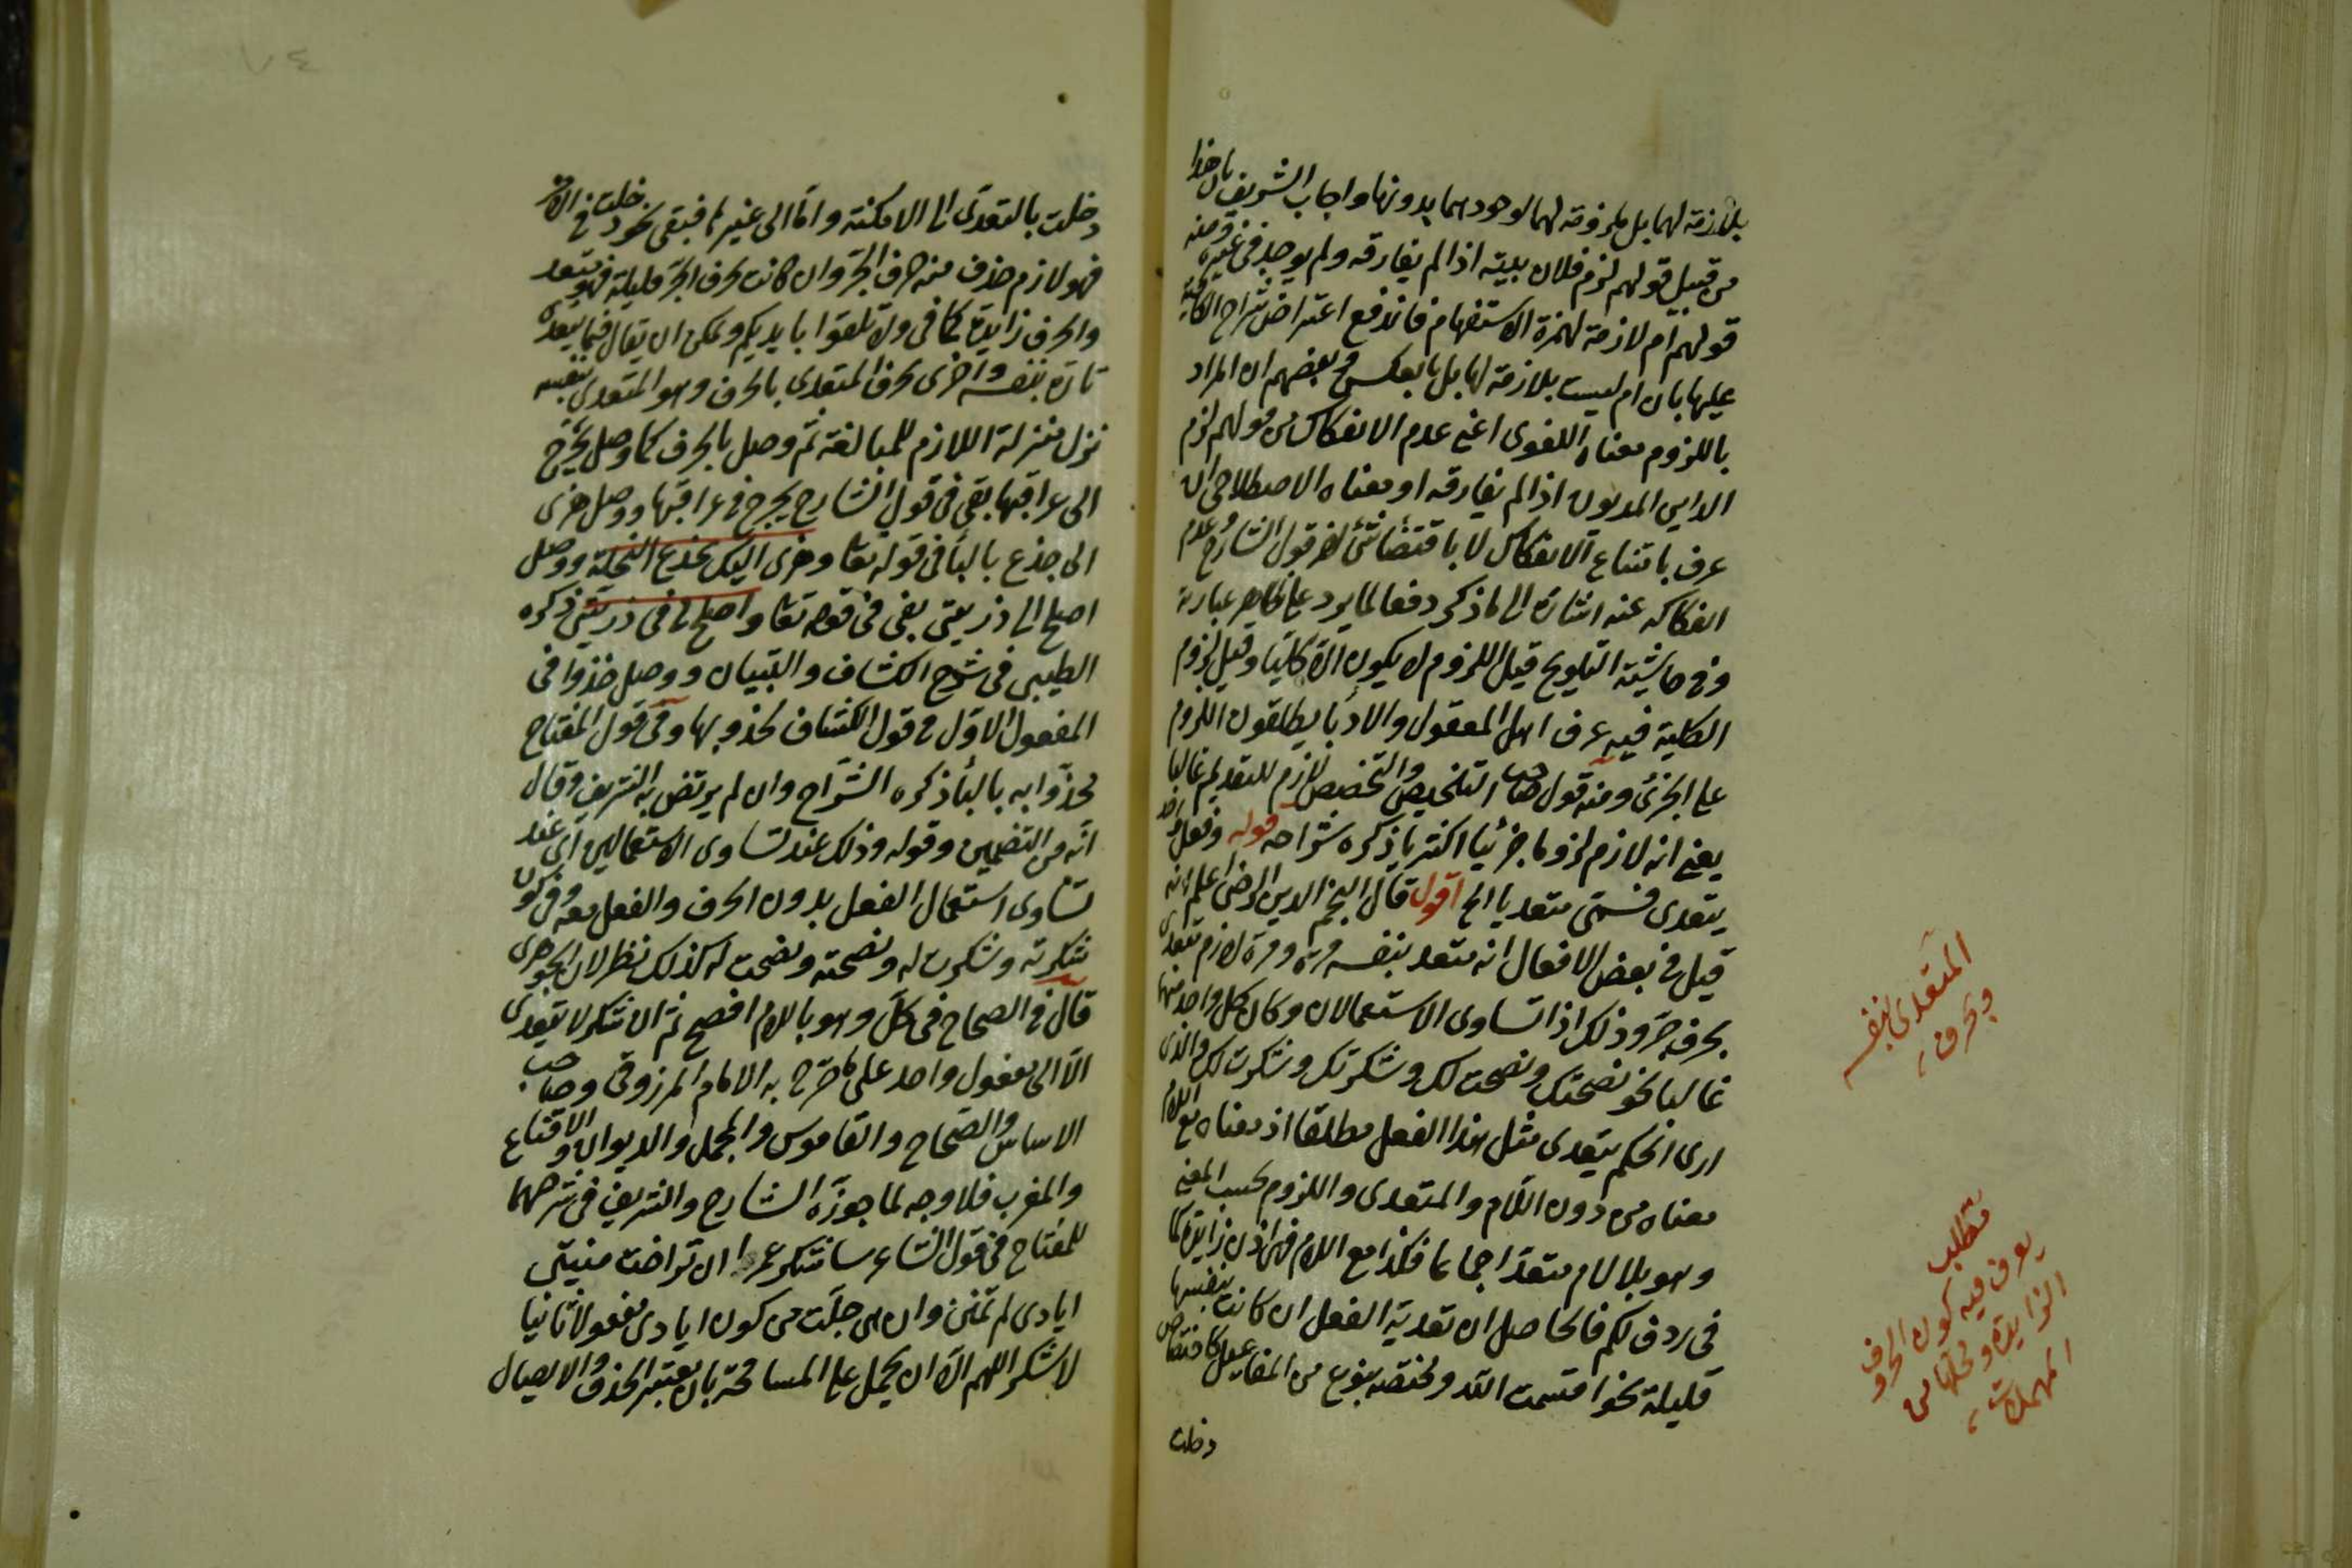 بلازمة لهما بل ملزومة لهما لوجودهما بدونها واجاب الشريف بان هذا
من قبيل قولهم لزم فلان بيته اذا لم يفارقه ولم يوجد في غيره ومنه
قولهم ام لازمة لهمزة الاستفهام فاندفع اعتراض شراح الكافية
عليها بان ام ليست بلازمة لها بل بالعكس وبعضهم ان المراد
باللزوم معناه اللغوى اعنى عدم الانفكاك من قولهم لزم
الداين المديون اذا لم يفارقه او معناه الاصطلاحى ان
عرف بامتناع الانفكاك لا باقتضا شئ اخر قول الشارح وعدم
انفكاكه عنه اشارة الى ما ذكر دفعا لما يرد على ظاهر عبارته
وفى حاشية التلويح قيل اللزوم لا يكون الا كليا وقيل لزوم
الكلية فيه عرف اهل المعقول والادبا يطلقون اللزوم
على الجزئى ومنه قول صاحب التلخيص والتخصيص لازم للتقديم غالبا
يعنى انه لازم لزوما جزئيا اكثريا ذكره شراحه قوله وفعل واحد
يتعدى فسمى متعديا الخ اقول قال النجم الدين الرضى اعلم انه
قيل فى بعض الافعال انه متعد بنفسه مرة ومرة لازم متعدى
بحرف جر وذلك اذا تساوى الاستعمالان وكان كل واحد منهما
غالبا نحو نصحتك ونصحت لك وشكرتك وشكرت لك والذى
ارى الحكم بتعدى مثل هذا الفعل مطلقا اذ معناه مع اللام
معناه من دون اللام والمتعدى واللزوم بحسب المعنى
وهو بلا لام متعد اجماعا فكذا مع اللام فهى اذن زايدة كما
فى ردف لكم فالحاصل ان تعدية الفعل ان كانت بنفسها
قليلة نحو اقسمت الله ومختصة بنوع من المفاعيل كاختصاص
دخلت
المتعدى بنفسه
وبحرف
مطلب
يعرف فيه كون الحروف
الزايدة و من
المهملات
دخلت بالتعدى الى الامكنة واما الى غيرها فبقى نحو دخلت فى الامر
فهو لازم حذف منه حرف الجر وان كانت بحرف الجر قليلة فهو متعد
والحرف زايدة كما فى ولا تلقوا بايديكم ويمكن ان يقال فيما يتعدى
تارة بنفسه واخرى بحرف المتعدى بالحرف وهو المتعدى بنفسه
نزل منزلة اللازم للمبالغة ثم وصل بالحرف كما وصل يجرح
الى عراقيبها بفى فى قول الشارح يجرح فى عراقيبها ووصل هزى
الى جذع بالبا فى قوله تعا وهزى اليك بجذع النخلة ووصل
اصلح الى ذريتى بفى فى قوله تعا واصلح لى فى ذريتى ذكره
الطيبى فى شرح الكشاف والتبيان ووصل خذوا فى
المفعول الاول فى قول الكشاف خذو بها وفى قول المفتاح
خذوا به بالبا ذكره الشراح وان لم يرتض به الشريف وقال
انه من التضمين وقوله وذلك عند تساوى الاستعمالين اى عند
تساوى استعمال الفعل بدون الحرف والفعل معه وفى كون
شكرته وشكرت له ونصحته ونصحت له كذلك نظر لان الجوهرى
قال فى الصحاح فى كل وهو باللام افصح ثم ان شكر لا يتعدى
الا الى مفعول واحد على ما صرح به الامام المرزوقى وصاحب
الاساس والصحاح والقاموس والمجمل والديوان والاقناع
والمغرب فلا وجه لما جوزه الشارح والشريف فى شرحهما
للمفتاح فى قول الشاعر ساشكر عمرا ان تراخت منيتى
ايادى لم تمنن وان هى جلت من كون ايادى مفعولا ثانيا
لاشكر اللهم الا ان يحمل على المسامحة بان يعتبر الحذف والايصال